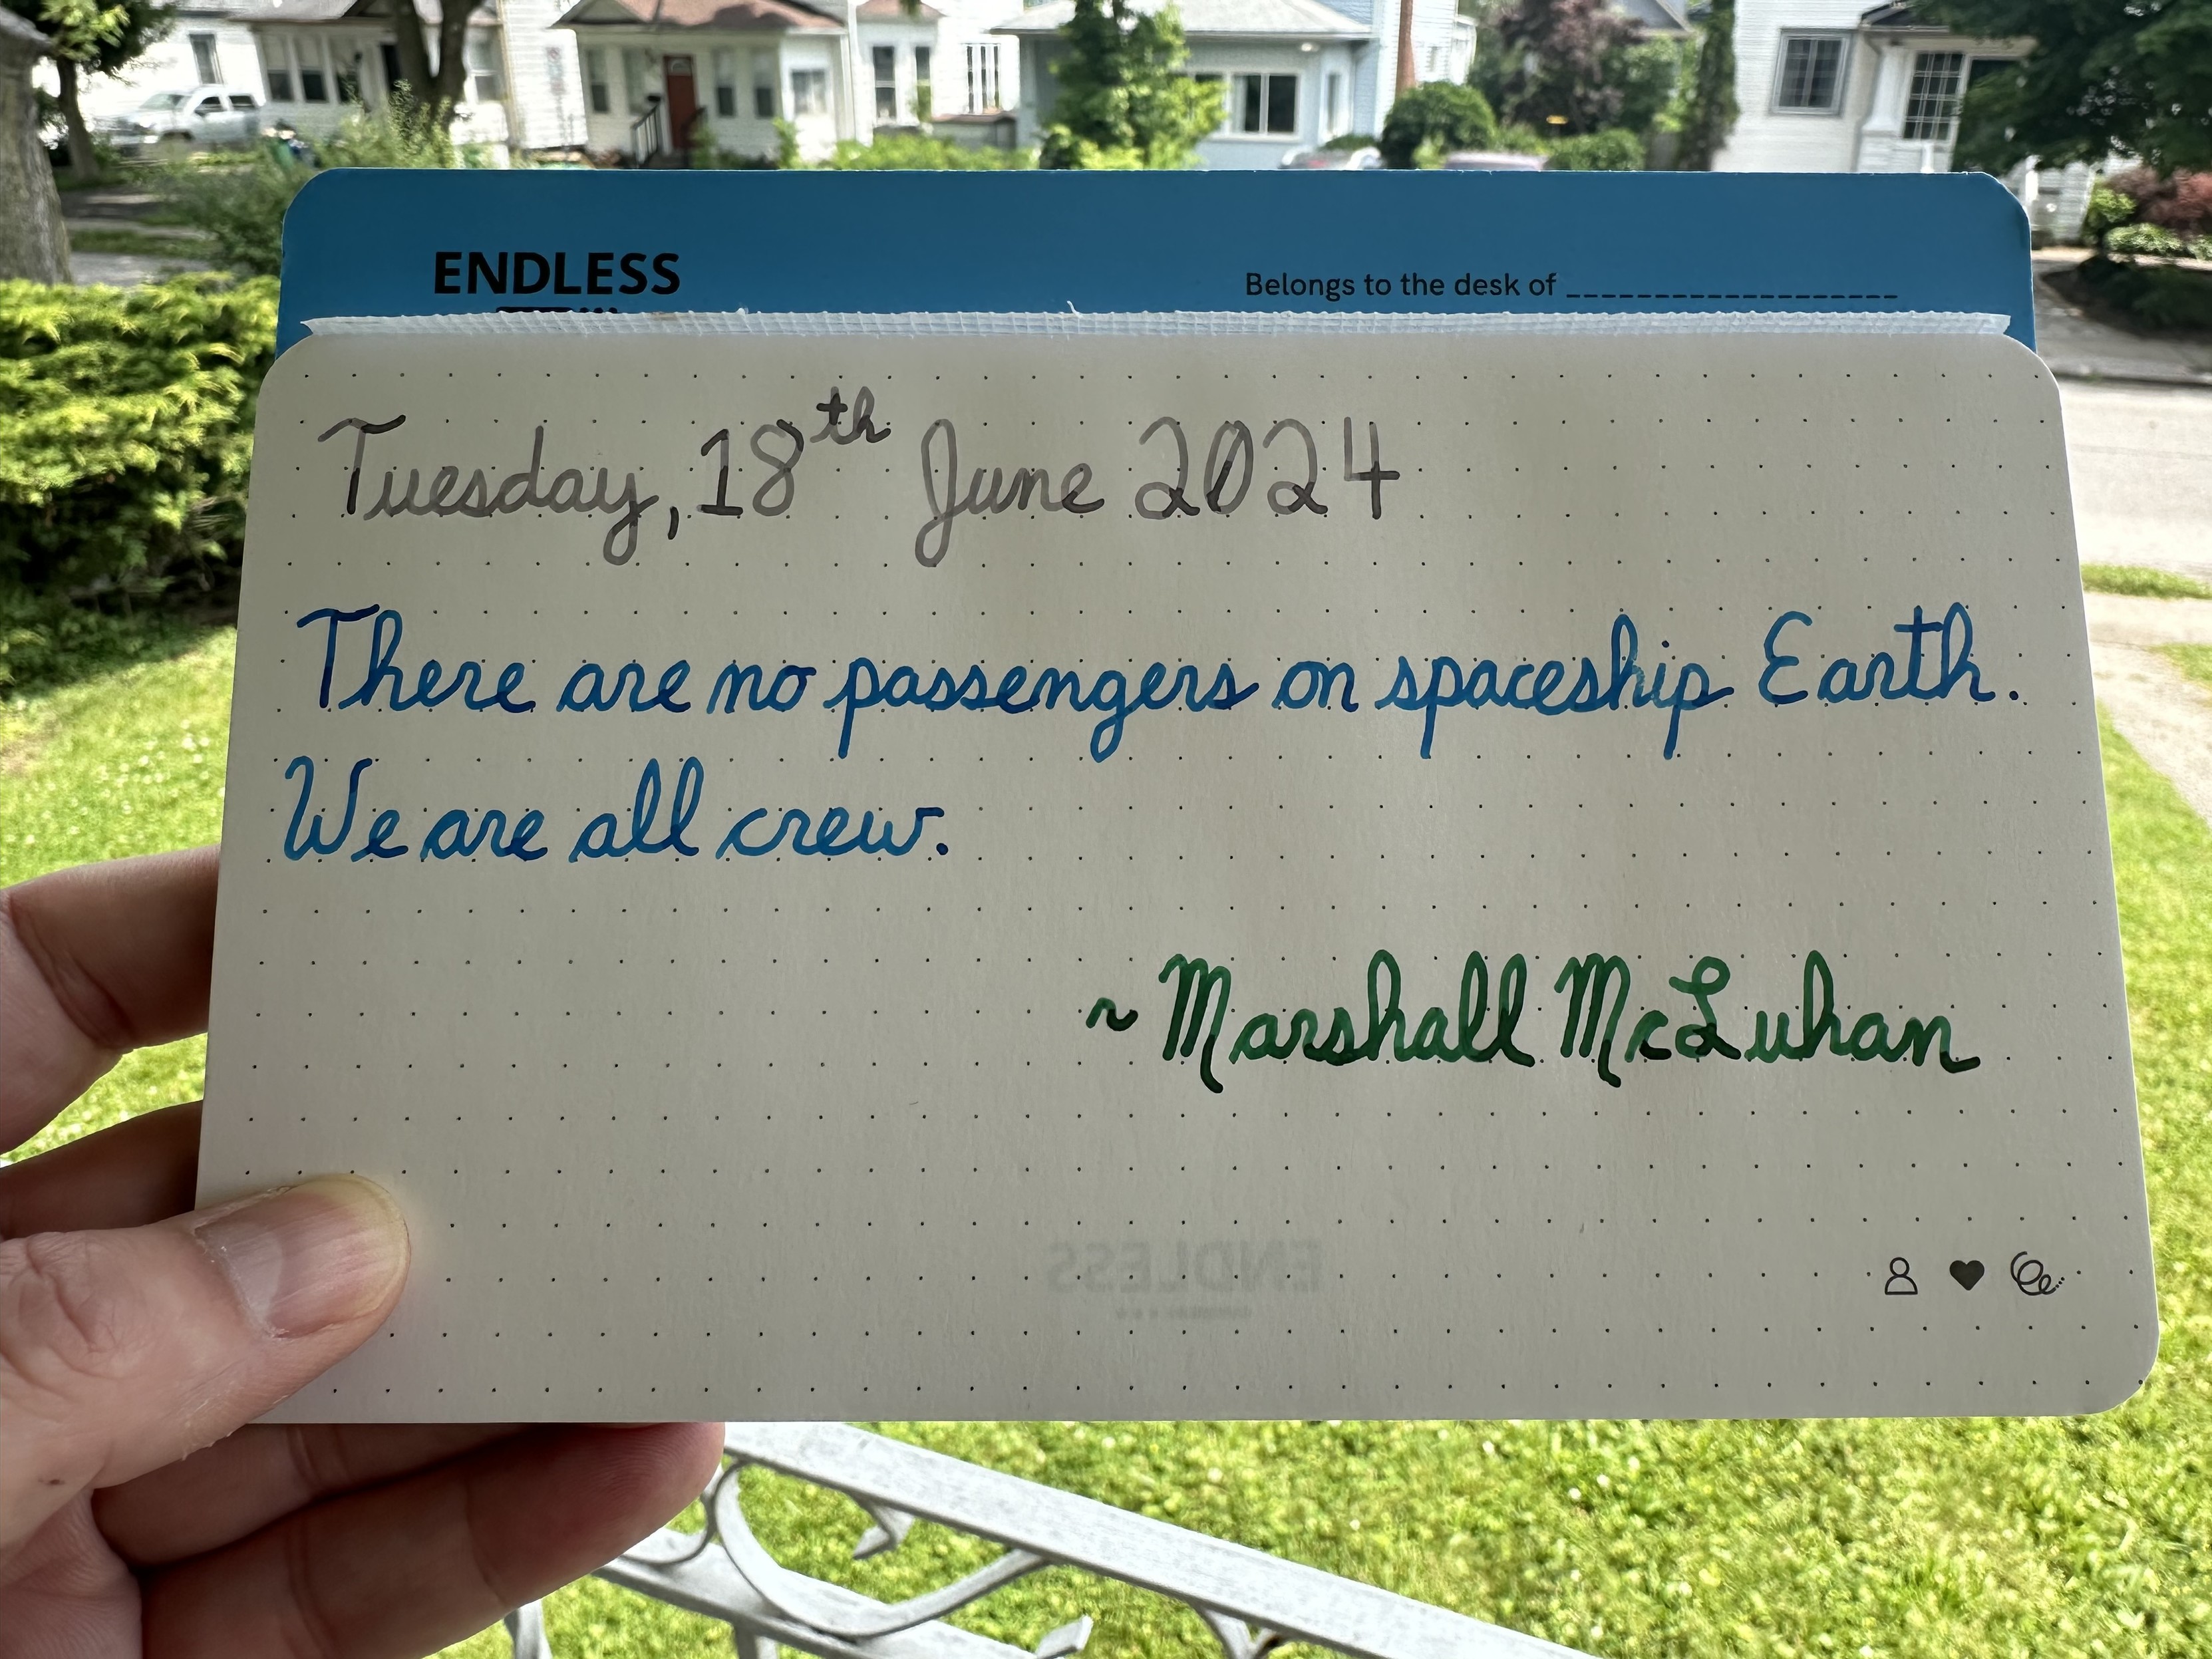 ENDLESS
Belongs to the desk of ____________________
Tuesday, 18th June 2024
There are no passengers on spaceship Earth.
We are all crew.
~ Marshall McLuhan
ENDLESS